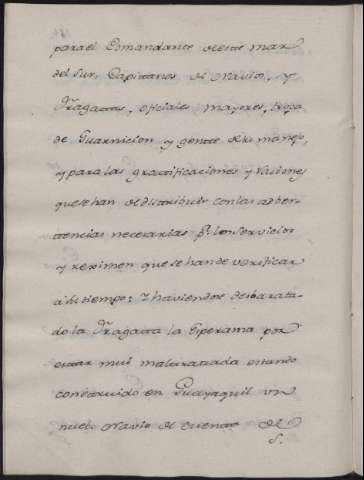 para el Comandante de este mar
del Sur, Capitanes de Navios, y
Fragatas, oficiales mayores, tropa
de Guarnicion y gente de su manejo,
y para las gratificaciones y raciones
que se han de distribuir con las adber-
tencias necesarias pa. los servicios
y reximen que se han de verificar
a su tiempo: Y haviendose desbarata-
do la Fragata la Esperansa por
estar mui maltratada estando
construido en Guayaquil un
nuebo Navio de cuenta de
S.